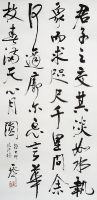 君子之交其淡如水執
象而求咫尺千里問余
何適廓尔忘言華
枝春滿天心月圓